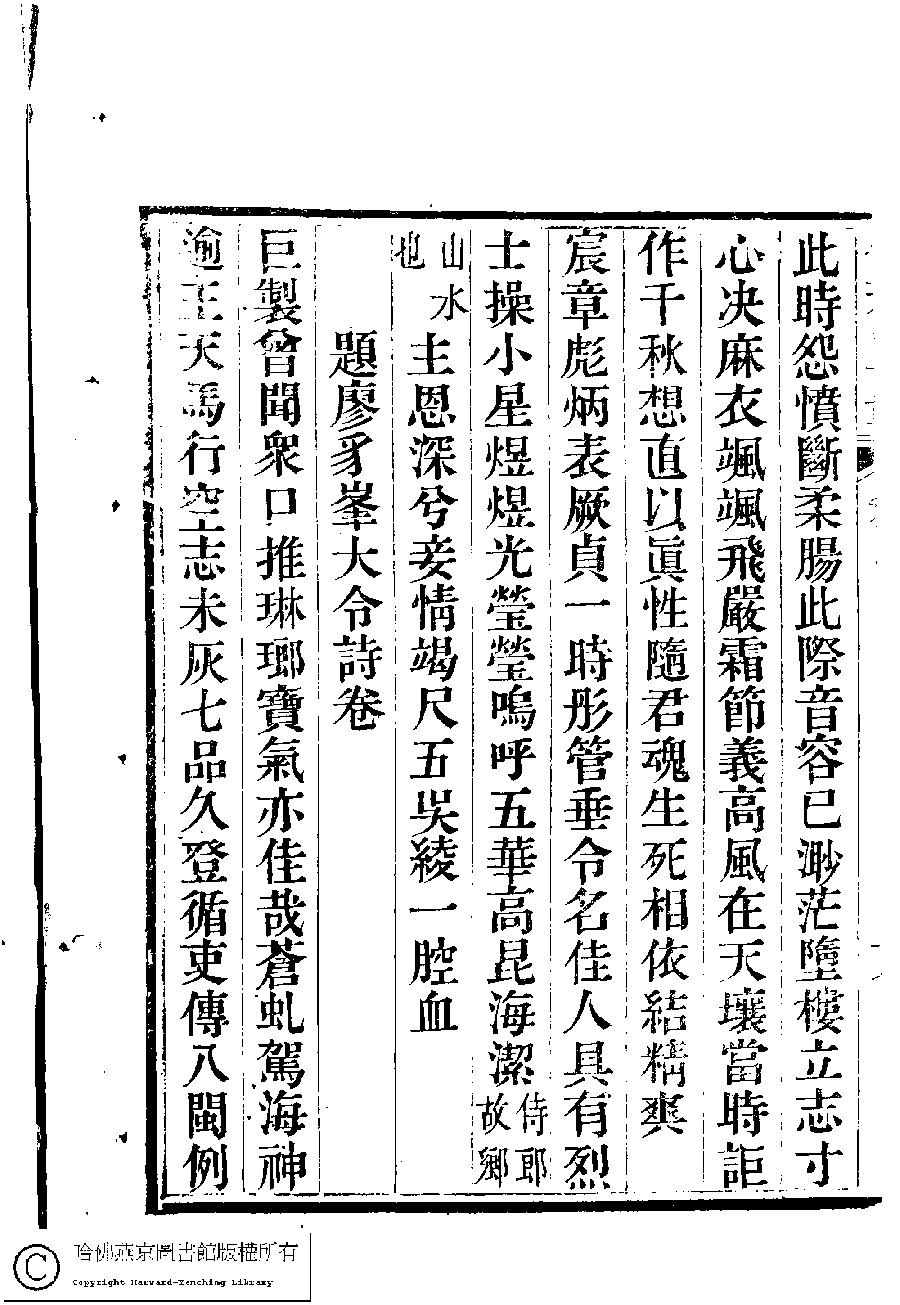 此時怨憤斷柔腸此際音容已渺茫墮樓立志寸
心决麻衣颯颯飛嚴霜節義高風在天壤當時詎
作千秋想直以眞性隨君魂生死相依結精爽
宸章彪炳表厥貞一時彤管垂令名佳人具有烈
士操小星煜煜光瑩瑩嗚呼五華高昆海潔侍郎故鄉
山水也主恩深兮妾情竭尺五吳綾一腔血
題廖豸峯大令詩卷
巨製曾聞衆口推琳瑯寶氣亦佳哉蒼虬駕海神
逾王天馬行空志未灰七品久登循吏傳八閩例
哈佛燕京圖書館版權所有
Copyright Harvard-Yenching Library